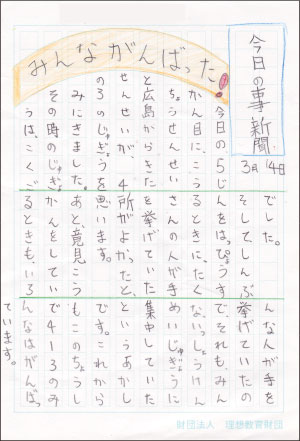 今日の事新聞
3月14日
みんながんばった!
今日の5じ
かん目に、こう
ちょうせんせい
と広島からきた
せんせいが、4
の3のじゅぎょうを
みにきました。
その時のじゅぎょ
うは、こくご
でした。
そしてしんぶ
んをはっぴょうす
るときに、たく
さんの人が手
を挙げていた
所がよかったと、
思います。
あと、意見こう
かんをしてい
るときも、いろ
んな人が手を
挙げていたの
で、それもみん
ないっしょうけん
めいじゅぎょうに
集中していた
というあかし
です。これから
もこのちょうし
で4-3のみ
んなはがんばっ
ています。
財団法人 理想教育財団